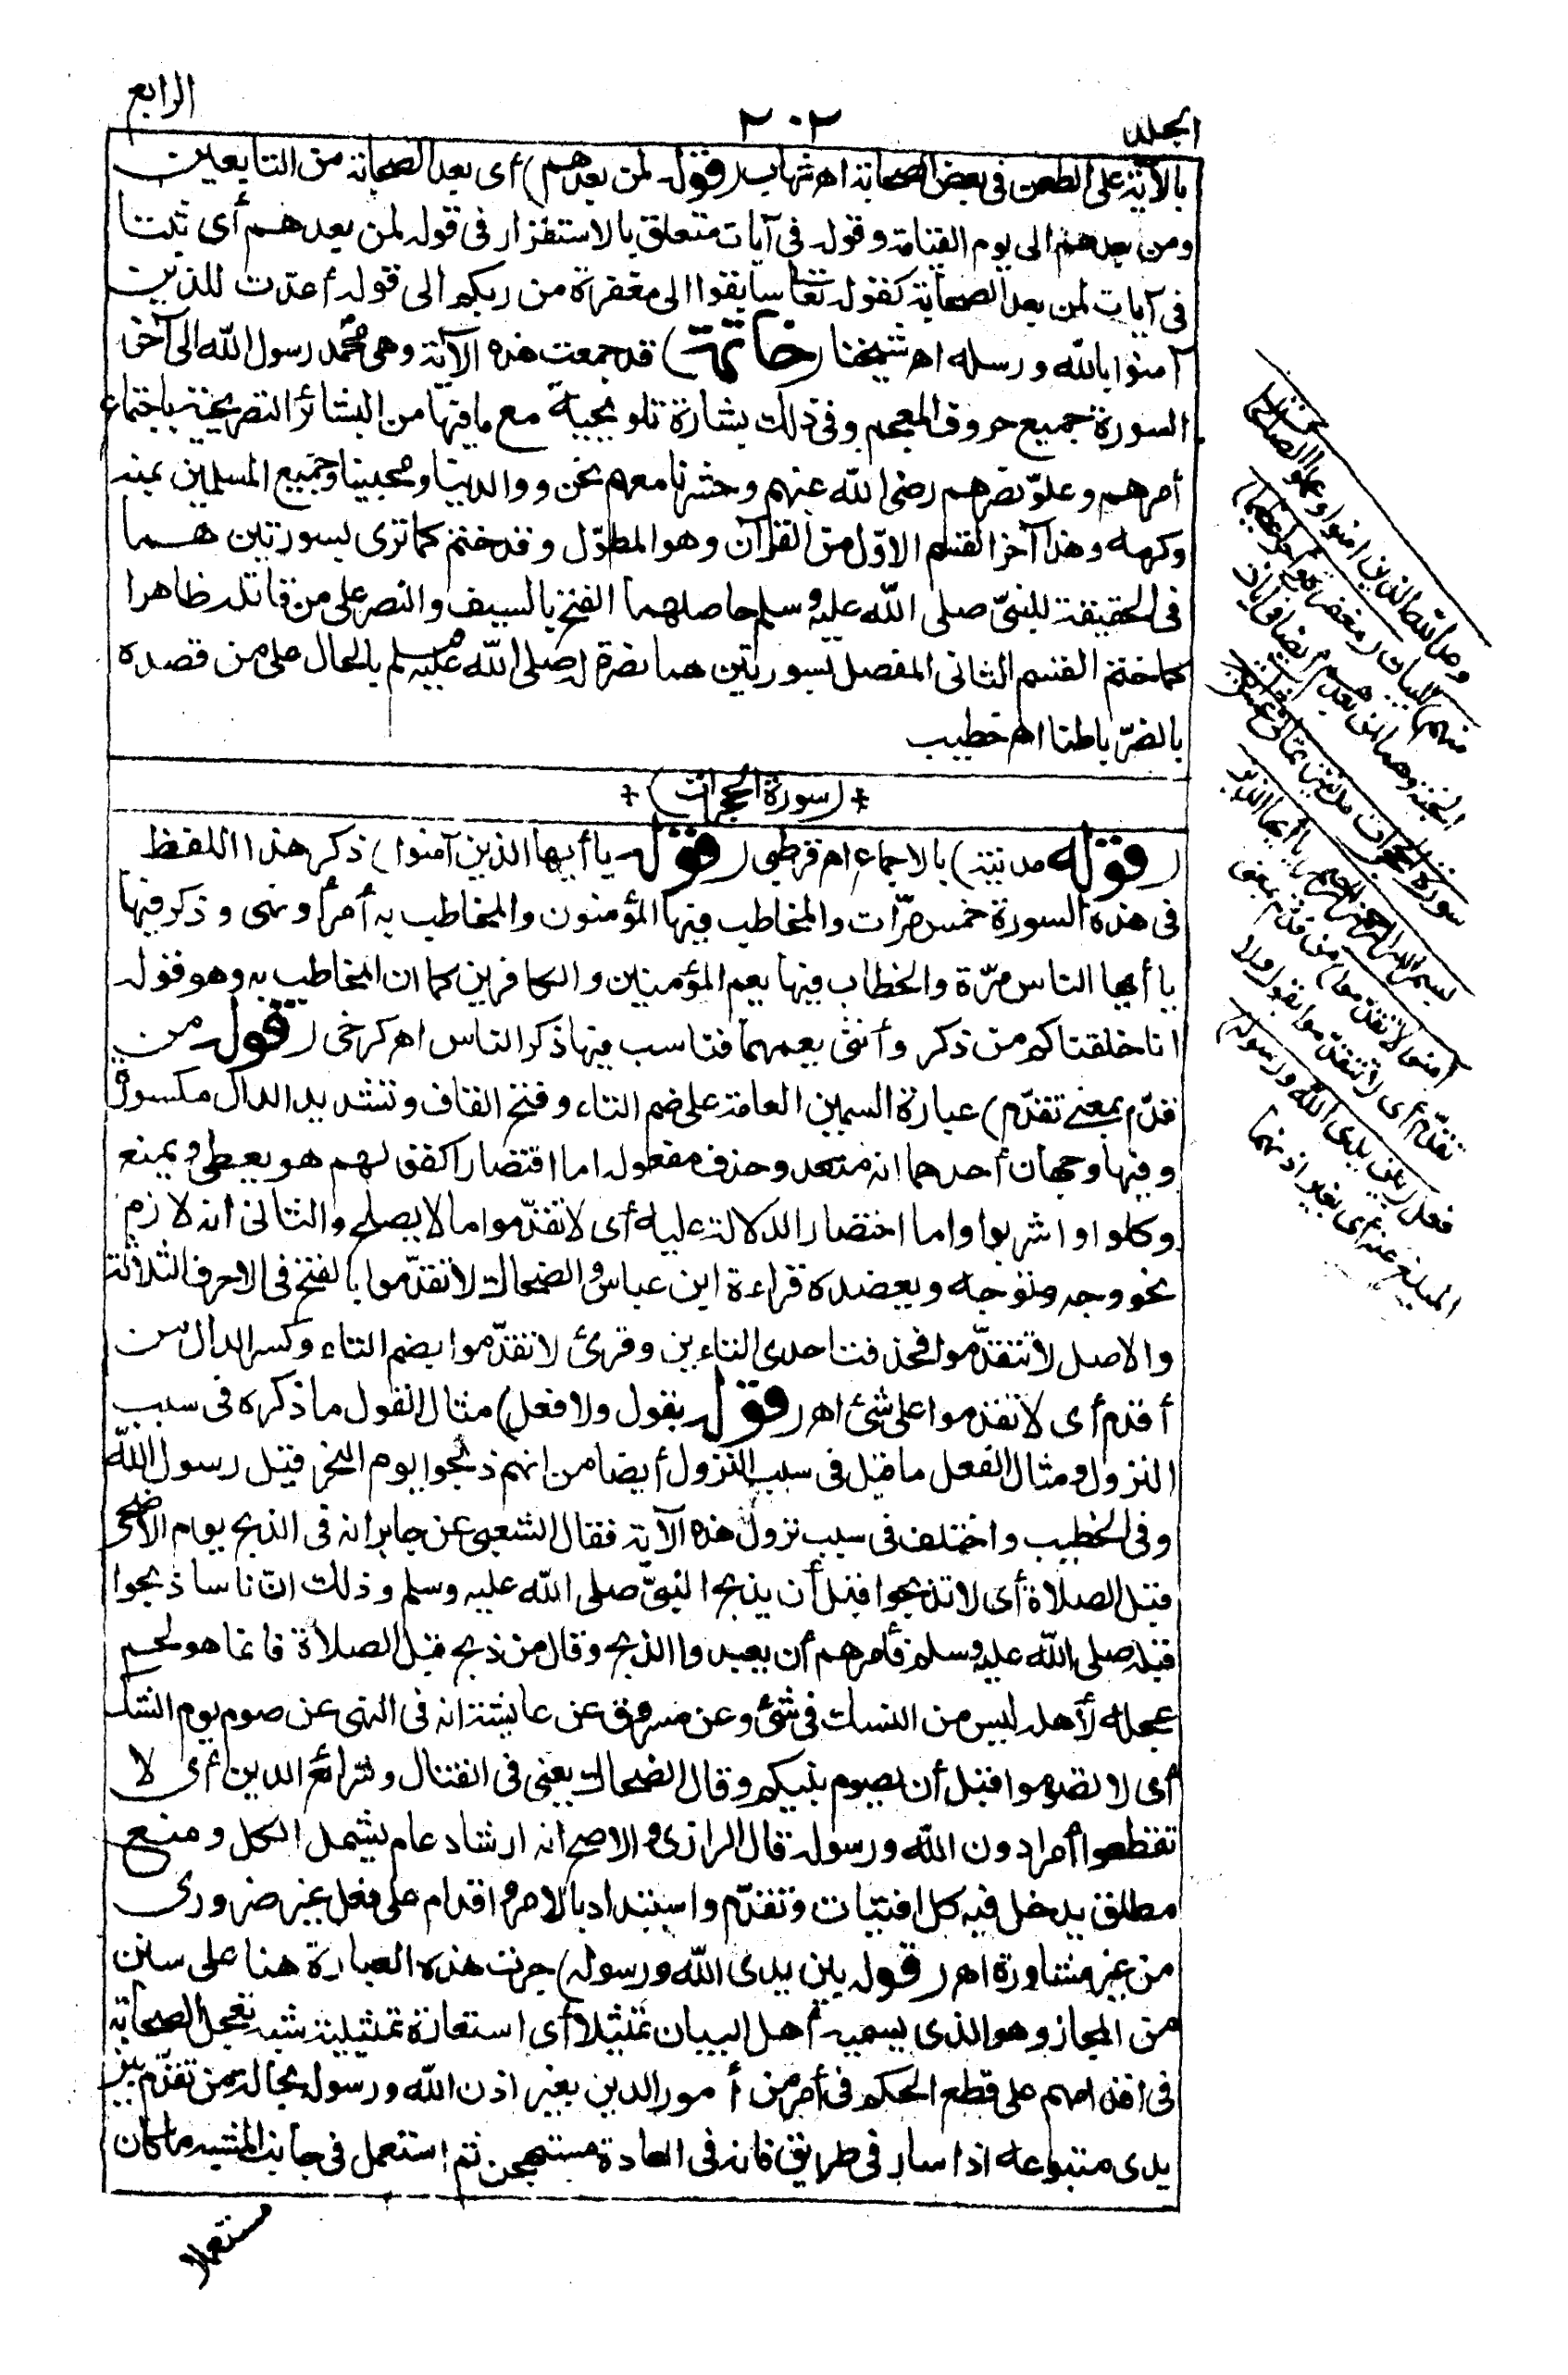 الجلد
٢٠٢
الرابع
بالآية على الطعن فى بعض الصحابة اه شهاب (قوله لمن بعدهم) أى بعد الصحابة من التابعين
ومن بعدهم الى يوم القيامة وقوله فى آيات متعلق بالاستقرار فى قوله لمن بعدهم أى ثبتا
فى آيات لمن بعد الصحابة كقوله تعا سابقوا الى مغفرة من ربكم الى قوله أعدّت للذين
آمنوا بالله ورسله اه شيخنا (خاتمة) قد جمعت هذه الآية وهى محمد رسول الله الى آخر
السورة جميع حروف المعجم وفى ذلك بشارة تلويحية مع ما فيها من البشائر التصريحية باجتماع
أمرهم وعلوّ نصرهم رضى الله عنهم وحشرنا معهم نحن ووالدينا ومحبينا وجميع المسلمين بمنه
وكرمه وهذا آخر القسم الاوّل من القرآن وهو المطوّل وقد ختم كما ترى بسورتين هما
فى الحقيقة للنبىّ صلى الله عليه وسلم حاصلهما الفتح بالسيف والنصر على من قاتله ظاهرا
كما ختم القسم الثانى المفصل بسورتين هما نصرة له صلى الله عليه وسلم بالحال على من قصده
بالضرّ باطنا اه خطيب
* (سورة الحجرات) *
(قوله مدنية) بالاجماع اه قرطبى (قوله يا أيها الذين آمنوا) ذكر هذا اللفظ
فى هذه السورة خمس مرّات والمخاطب فيها المؤمنون والمخاطب به أمر أو نهى وذكر فيها
يا أيها الناس مرّة والخطاب فيها يعم المؤمنين والكافرين كما ان المخاطب به وهو قوله
انا خلقناكم من ذكر وأنثى يعمهما فناسب فيها ذكر الناس اه كرخى (قوله من
قدّم بمعنى تقدّم) عبارة السمين العامة على ضم التاء وفتح القاف وتشديد الدال مكسورة
وفيها وجهان أحدهما انه متعد وحذف مفعوله اما اقتصارا كقولهم هو يعطى ويمنع
وكلوا واشربوا واما اختصارا للدلالة عليه أى لا تقدّموا ما لا يصلح والثانى انه لازم
نحو وجه وتوجه ويعضده قراءة ابن عباس والضحاك لا تقدّموا بالفتح فى الاحرف الثلاثة
والاصل لا تتقدّموا فحذفت احدى التاءين وقرئ لا تقدّموا بضم التاء وكسر الدال من
أقدم أى لا تقدموا على شئ اه (قوله بقول ولا فعل) مثال القول ما ذكره فى سبب
النزول ومثال الفعل ما قيل فى سبب النزول أيضا من انهم ذبحوا يوم النحر قبل رسول الله
وفى الخطيب واختلف فى سبب نزول هذه الآية فقال الشعبى عن جابر انه فى الذبح يوم الأضحى
قبل الصلاة أى لا تذبحوا قبل أن يذبح النبىّ صلى الله عليه وسلم وذلك انّ ناسا ذبحوا
قبله صلى الله عليه وسلم فأمرهم أن يعيدوا الذبح وقال من ذبح قبل الصلاة فانما هو لحم
عجله لأهله ليس من النسك فى شئ وعن مسروق عن عايشة انه فى النهى عن صوم يوم الشك
أى لا تصوموا قبل أن يصوم نبيكم وقال الضحاك يعنى فى القتال وشرائع الدين أى لا
تقطعوا أمرا دون الله ورسوله قال الرازى والاصح انه ارشاد عام يشمل الكل ومنع
مطلق يدخل فيه كل افتيات وتقدّم واستبداد بالامر واقدام على فعل غير ضرورى
من غير مشاورة اه (قوله بين يدى الله ورسوله) جرت هذه العبارة هنا على سنن
من المجاز وهو الذى يسميه أهل البيان تمثيلا أى استعارة تمثيلية شبه تعجل الصحابة
فى اقدامهم على قطع الحكم فى أمر من أمور الدين بغير اذن الله ورسوله بحالة من تقدّم بين
يدى متبوعه اذا سار فى طريق فانه فى العادة مستهجن ثم استعمل فى جانب المشبه ما كان
مستعملا
وعد الله الذين امنوا وعملوا الصالحات
منهم للبيان مغفرة وأجرا عظيما
الجنة وهما لمن بعدهم أيضا فى آيات
سورة الحجرات مدنية ثمانى عشرة آية
بسم الله الرحمن الرحيم يا أيها الذين
آمنوا لا تقدّموا من قدّم بمعنى
تقدّم أى لا تتقدّموا بقول ولا
فعل بين يدى الله ورسوله
المبلغ عنه أى بغير اذنهما